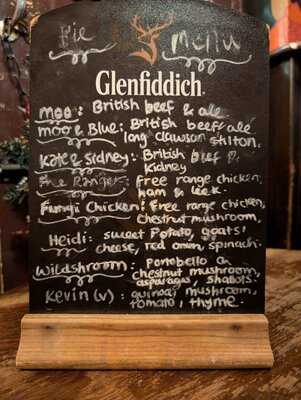 Pie Menu
Glenfiddich
Moo: British beef & ale
Moo & Blue: British beef ale
long clawson stilton.
Kate & Sidney: British Beef
Kidney
The Ranger: Free range chicken,
ham & leek.
Fungi Chicken: Free range chicken,
Chestnut mushroom.
Heidi: sweet Potato, goats'
cheese, red onion, spinach.
Wildshroom: Portobello
chestnut mushroom,
asparagus, shallots.
Kevin (v): quinoa, mushroom,
tomato, thyme.